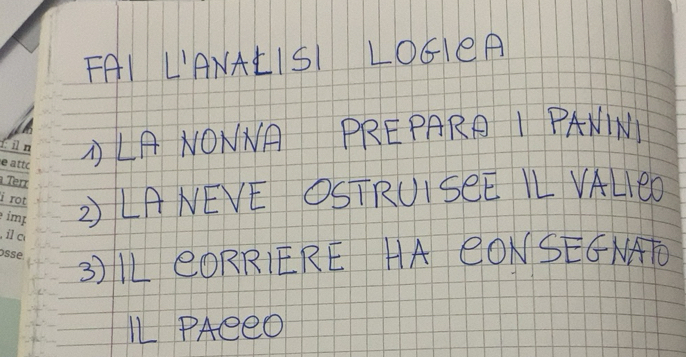 FAI L'ANALISI LOGICA
1) LA NONNA PREPARA I PANINI
2) LA NEVE OSTRUISCE IL VALICO
3) IL CORRIERE HA CONSEGNATO
IL PACCO
il n
e atto
Terr
i rot
e imp
, il c
osse